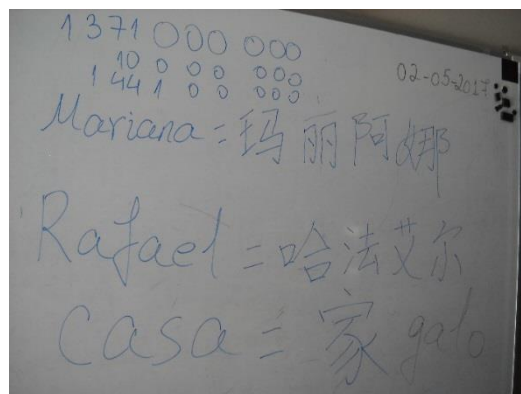 1 371 000 000
10 0 0 0 000
1 441 0 0 000
02-05-2017
Mariana = 玛丽阿娜
Rafael = 哈法艾尔
casa = 家 galo